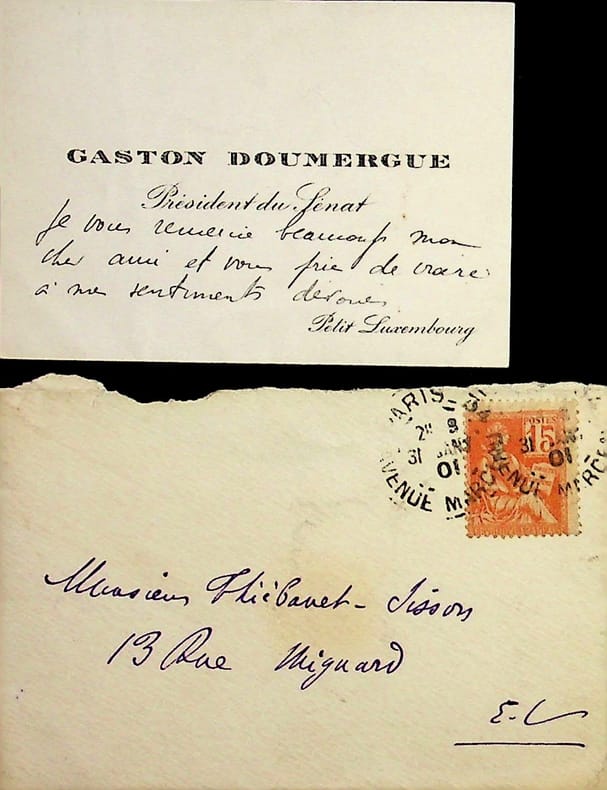 GASTON DOUMERGUE
Président du Sénat
Je vous remercie beaucoup mon
cher ami et vous prie de croire
à mes sentiments dévoués
Petit Luxembourg
PARIS
31 JANV
01
AVENUE MARCEAU
31
01
POSTES
15
Monsieur Thiébault-Sisson
13 Rue Mignard
E.V